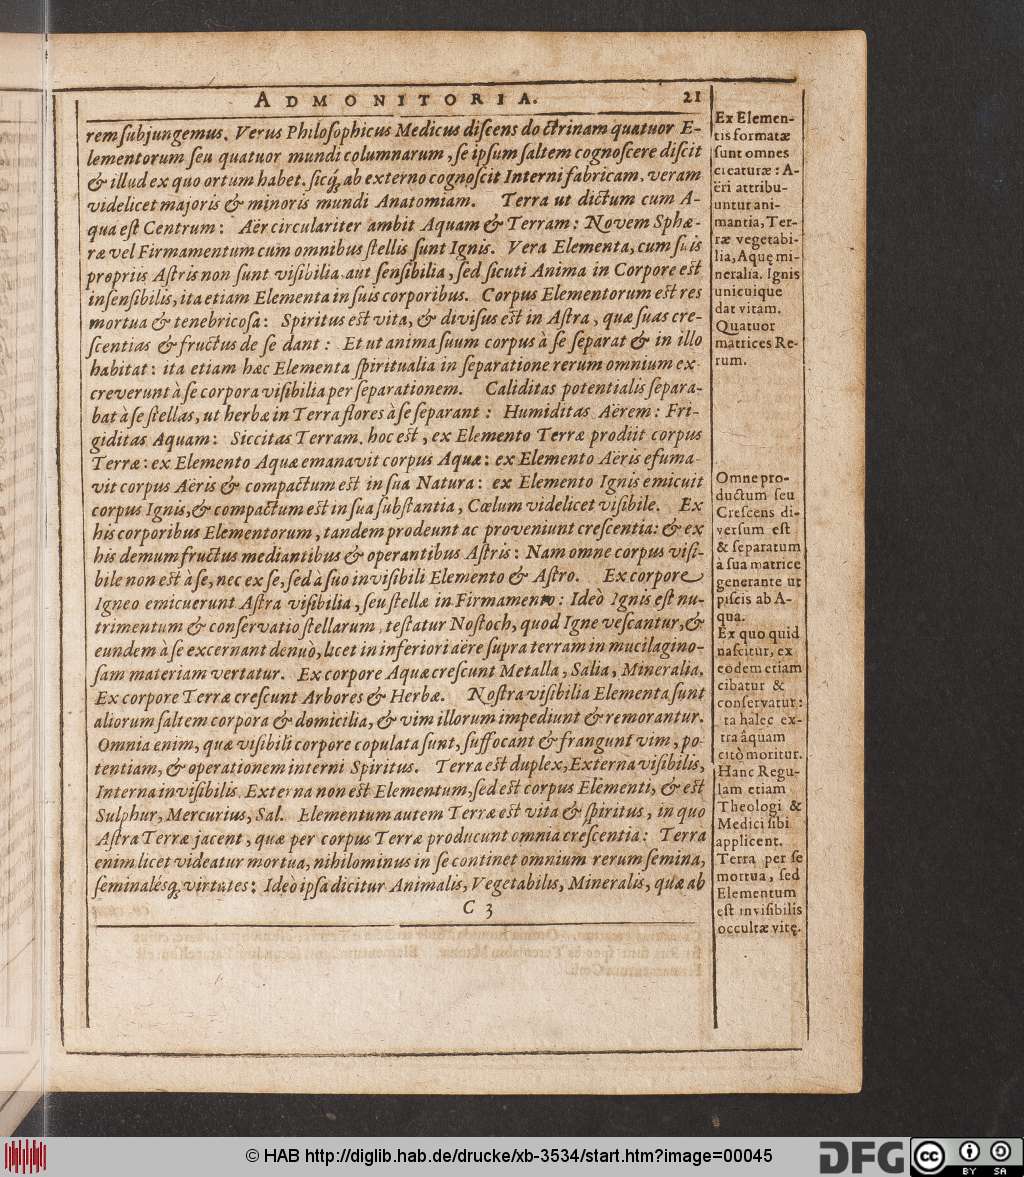 ADMONITORIA. 21
rem ſubjungemus. Verus Philoſophicus Medicus diſcens doctrinam quatuor E-
lementorum ſeu quatuor mundi columnarum, ſe ipſum ſaltem cognoſcere diſcit
& illud ex quo ortum habet. ſicq; ab externo cognoſcit Interni fabricam, veram
videlicet majoris & minoris mundi Anatomiam. Terra ut dictum cum A-
qua eſt Centrum: Aër circulariter ambit Aquam & Terram: Novem Sphæ-
ræ vel Firmamentum cum omnibus ſtellis ſunt Ignis. Vera Elementa, cum ſuis
propriis Aſtris non ſunt viſibilia aut ſenſibilia, ſed ſicuti Anima in Corpore eſt
inſenſibilis, ita etiam Elementa in ſuis corporibus. Corpus Elementorum eſt res
mortua & tenebricoſa: Spiritus eſt vita, & diviſus eſt in Aſtra, quæ ſuas cre-
ſcentias & fructus de ſe dant: Et ut anima ſuum corpus à ſe ſeparat & in illo
habitat: ita etiam hæc Elementa ſpiritualia in ſeparatione rerum omnium ex-
creverunt à ſe corpora viſibilia per ſeparationem. Caliditas potentialis ſepara-
bat à ſe ſtellas, ut herbæ in Terra flores à ſe ſeparant: Humiditas Aërem: Fri-
giditas Aquam: Siccitas Terram. hoc eſt, ex Elemento Terræ prodiit corpus
Terræ: ex Elemento Aquæ emanavit corpus Aquæ: ex Elemento Aëris efuma-
vit corpus Aëris & compactum eſt in ſua Natura: ex Elemento Ignis emicuit
corpus Ignis, & compactum eſt in ſua ſubſtantia, Cœlum videlicet viſibile. Ex
his corporibus Elementorum, tandem prodeunt ac proveniunt creſcentia: & ex
his demum fructus mediantibus & operantibus Aſtris: Nam omne corpus viſi-
bile non eſt à ſe, nec ex ſe, ſed à ſuo inviſibili Elemento & Aſtro. Ex corpore
Igneo emicuerunt Aſtra viſibilia, ſeu ſtellæ in Firmamento: Ideò Ignis eſt nu-
trimentum & conſervatio ſtellarum, teſtatur Noſtoch, quod Igne veſcantur, &
eundem à ſe excernant denuò, licet in inferiori aëre ſupra terram in mucilagino-
ſam materiam vertatur. Ex corpore Aquæ creſcunt Metalla, Salia, Mineralia.
Ex corpore Terræ creſcunt Arbores & Herbæ. Noſtra viſibilia Elementa ſunt
aliorum ſaltem corpora & domicilia, & vim illorum impediunt & remorantur.
Omnia enim, quæ viſibili corpore copulata ſunt, ſuffocant & frangunt vim, po-
tentiam, & operationem interni Spiritus. Terra eſt duplex, Externa viſibilis,
Interna inviſibilis. Externa non eſt Elementum, ſed eſt corpus Elementi, & eſt
Sulphur, Mercurius, Sal. Elementum autem Terræ eſt vita & ſpiritus, in quo
Aſtra Terræ jacent, quæ per corpus Terræ producunt omnia creſcentia: Terra
enim licet videatur mortua, nihilominus in ſe continet omnium rerum ſemina,
ſeminalésq; virtutes: Ideo ipſa dicitur Animalis, Vegetabilis, Mineralis, quæ ab
C 3
Ex Elemen-
tis formatæ
ſunt omnes
creaturæ: A-
ëri attribu-
untur ani-
mantia, Ter-
ræ vegetabi-
lia, Aquę mi-
neralia. Ignis
unicuique
dat vitam.
Quatuor
matrices Re-
rum.
Omne pro-
ductum ſeu
Creſcens di-
verſum eſt
& ſeparatum
à ſua matrice
generante ut
piſcis ab A-
qua.
Ex quo quid
naſcitur, ex
eodem etiam
cibatur &
conſervatur:
ita halec ex-
tra aquam
citò moritur.
Hanc Regu-
lam etiam
Theologi &
Medici ſibi
applicent.
Terra per ſe
mortua, ſed
Elementum
eſt inviſibilis
occultæ vitę.
© HAB http://diglib.hab.de/drucke/xb-3534/start.htm?image=00045
DFG
cc BY SA